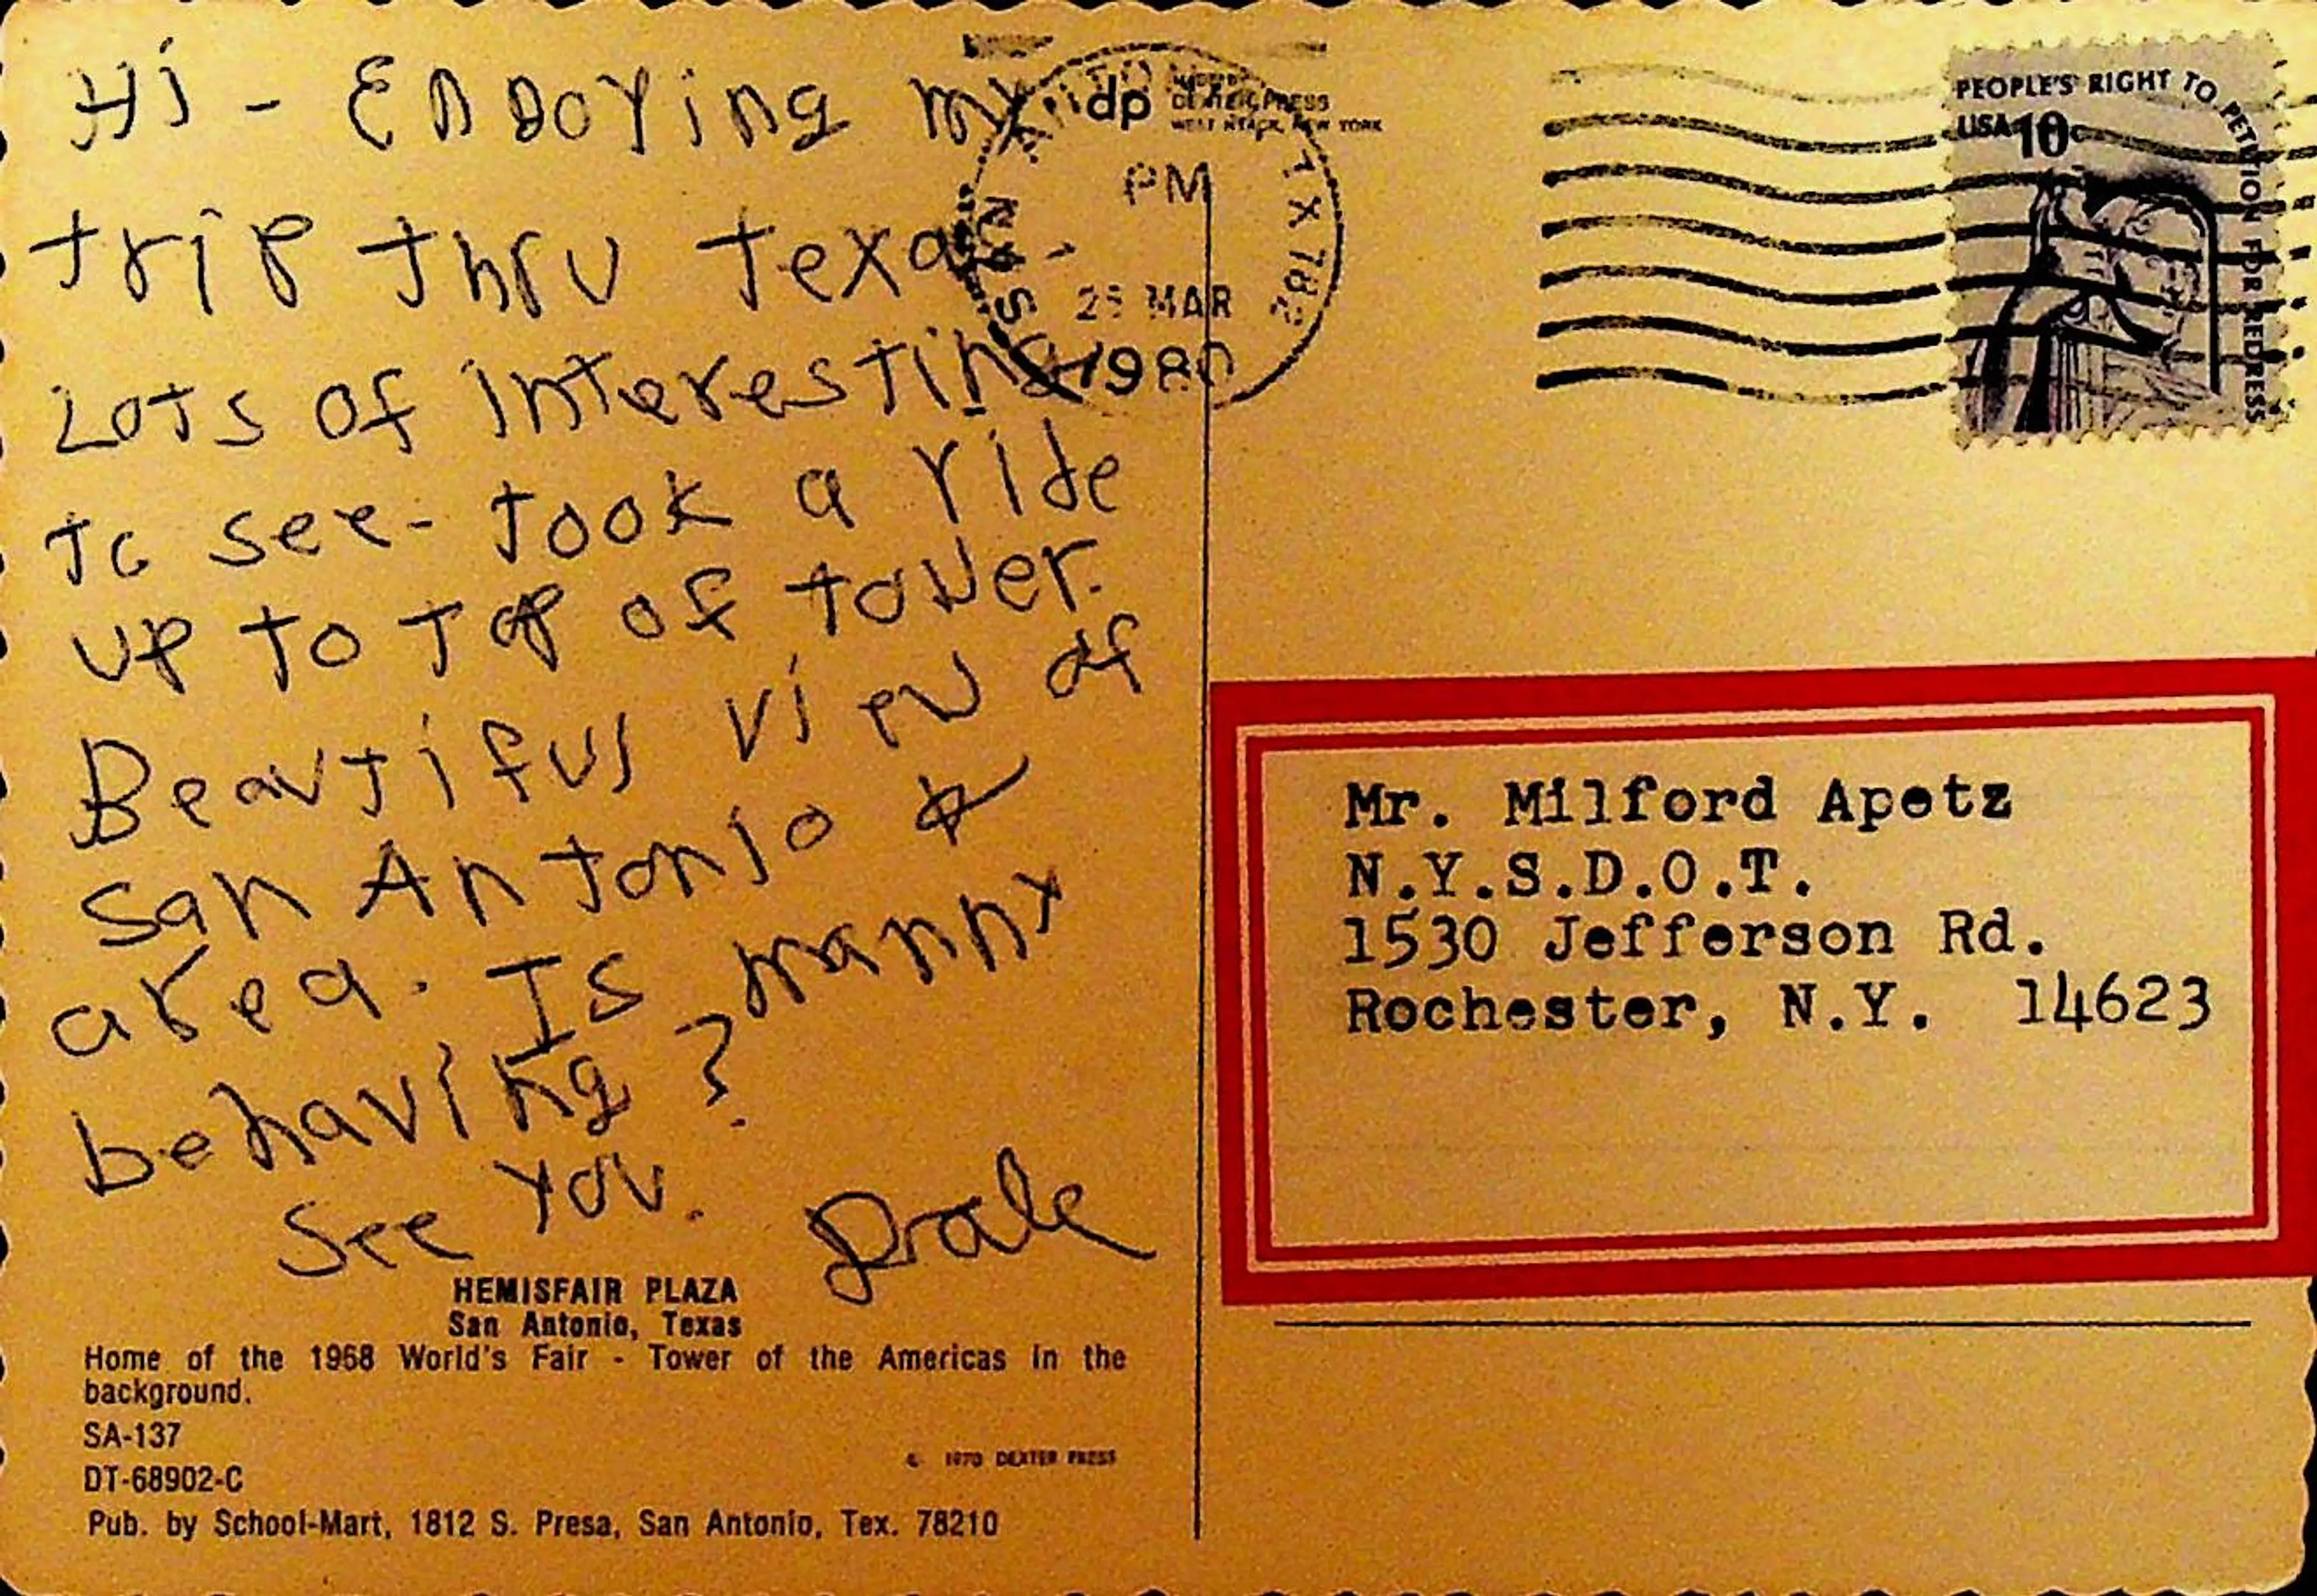 Hi - Enjoying my
trip thru Texas -
Lots of interesting
to see - took a ride
up to top of tower.
Beautiful view of
San Antonio &
area. Is Manny
behaving?
See you. Dale
HEMISFAIR PLAZA
San Antonio, Texas
Home of the 1968 World's Fair - Tower of the Americas in the
background.
SA-137
DT-68902-C
© 1970 DEXTER PRESS
Pub. by School-Mart, 1812 S. Presa, San Antonio, Tex. 78210
dp
DEXTER PRESS
WEST NYACK, NEW YORK
SAN
TX 782
PM
MAR
1980
PEOPLE'S RIGHT TO PETITION FOR REDRESS
USA 10c
Mr. Milford Apetz
N.Y.S.D.O.T.
1530 Jefferson Rd.
Rochester, N.Y. 14623